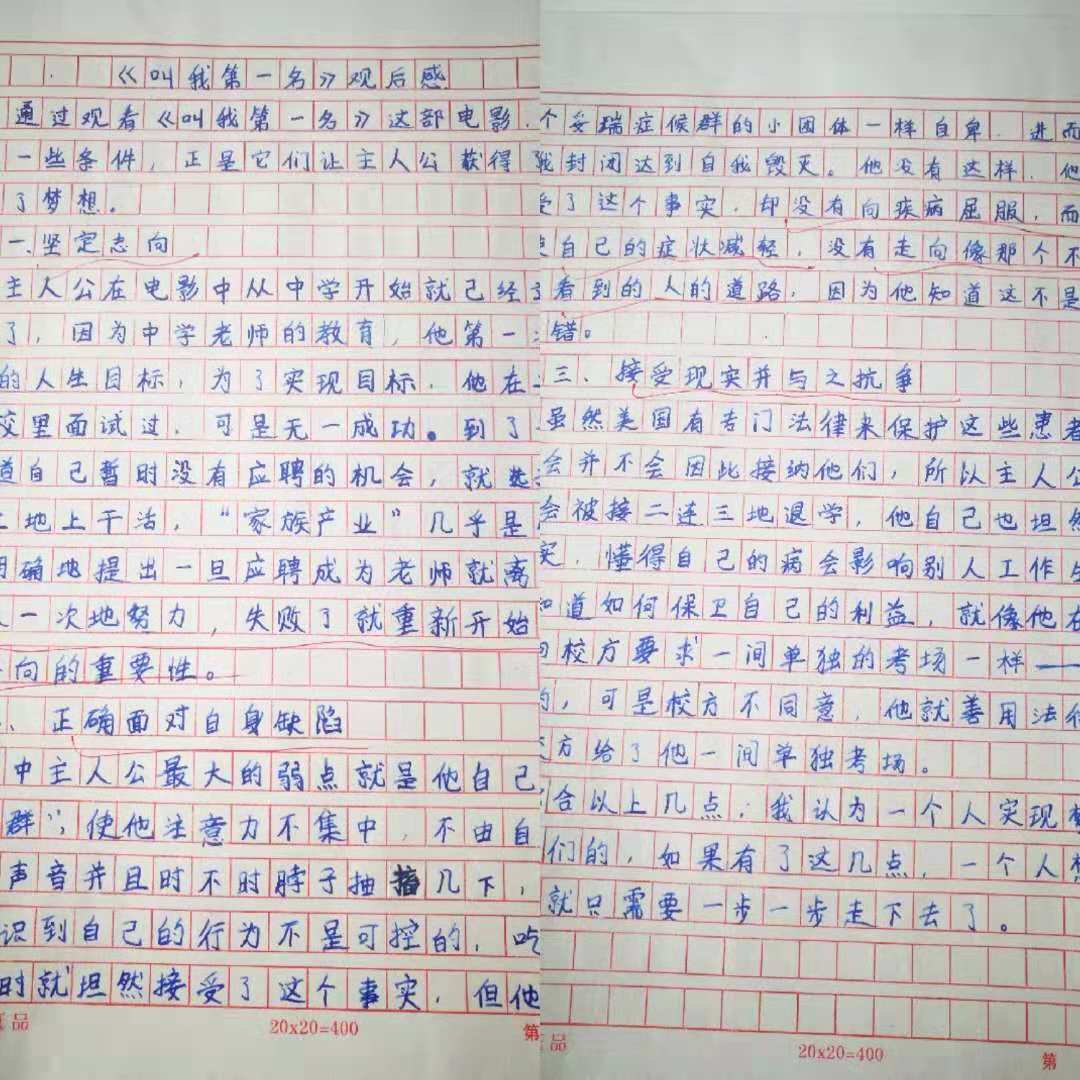 《叫我第一名》观后感
通过观看《叫我第一名》这部电影，
一些条件，正是它们让主人公获得
了梦想。
一、坚定志向
主人公在电影中从中学开始就已经
了，因为中学老师的教育，他第一
的人生目标，为了实现目标，他在
校里面试过，可是无一成功。到了
道自己暂时没有应聘的机会，就选
工地上干活，“家族产业”几乎是
明确地提出一旦应聘成为老师就离
一次地努力，失败了就重新开始
向的重要性。
、正确面对自身缺陷
中主人公最大的弱点就是他自己
群”，使他注意力不集中，不由自
声音并且时不时脖子抽搐几下，
识到自己的行为不是可控的，吃
时就坦然接受了这个事实，但他
品
20x20=400
第
个妥瑞症候群的小团体一样自卑，进而
我封闭达到自我毁灭。他没有这样，他
受了这个事实，却没有向疾病屈服，而
自己的症状减轻，没有走向像那个不
看到的人的道路，因为他知道这不是
错。
三、接受现实并与之抗争
虽然美国有专门法律来保护这些患者
会并不会因此接纳他们，所以主人公
会被接二连三地退学，他自己也坦然
实，懂得自己的病会影响别人工作生
知道如何保卫自己的利益，就像他在
向校方要求一间单独的考场一样——
的，可是校方不同意，他就善用法律
校方给了他一间单独考场。
合以上几点，我认为一个人实现梦
们的，如果有了这几点，一个人想
就只需要一步一步走下去了。
品
20x20=400
第